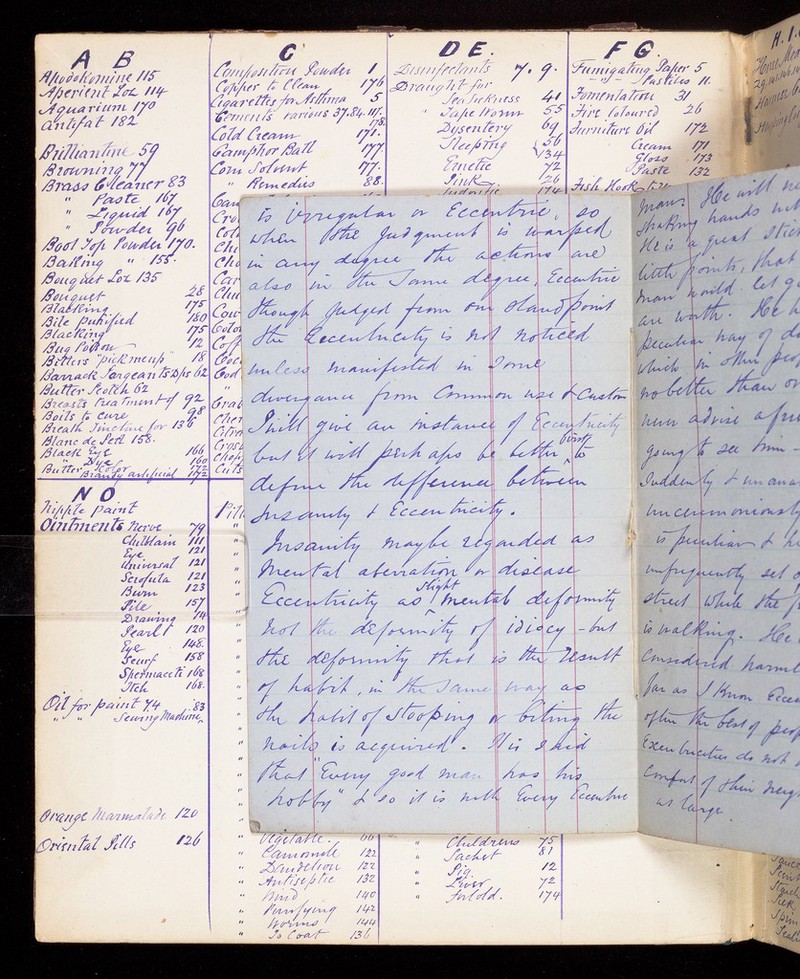 A B
Apodokomine 115
Aperient Loz 114
Aquarium 170
Antifat 182
Brilliantine 59
Browning 77
Brass Cleaner 83
" Paste 167
" Liquid 167
" Powder 96
Boot Top Powder 170.
Baking " 155
Bouquet Loz 135
Bouquet 28
Blacking 175
Bile Purified 180
Blacking 175
Bug Poison 12
Bitters "pick me up" 18
Barrack Sargeants Dps 62
Butter Scotch 62
Breasts Treatment of 92
Boils to cure 98
Breath Tincture for 136
Blanc de Perl 158.
Black Eye 166
" Dye 160
Butter Color 172
Brandy artificial 172
C
Composition Powder 1
Copper to Clean 176
Cigarettes for Asthma 5
Cements various 37.84.117.
178.
Cold Cream 171.
Camphor Ball 177
Corn Solvent 77.
" Remedies 88.
D E.
Disinfectants 7. 9.
Draught for
" Sea Sickness 41
" Tape Worm 55
Dysentery 69
Sleeping 56
134
Emetic 72
Pink 126
174
F G.
Fumigating Paper 5
" Pastiles 11.
Fomentation 31
Fire Coloured 26
Furniture Oil 172
Cream 171
Gloss 173
Paste 132
Fish Hook
H. I.
N O
Nipple paint
Ointments Nerve 79
Chilblain 111
Eye 121
Universal 121
Scrofula 121
Burn 123
Pile 157
Drawing 114
Pearl 120
Eye 148.
Scurf 158
Spermaceti 168
Itch 168.
Oil for paint 74 .83
" " Sewing Machine,
Orange Marmalade 120
Oriental Pills 126
is irregular or Eccentric, so
when the Judgment is warped
in any degree the actions are
also in the same degree, Eccentric
though Judged from our Standpoint
the Eccentricity is not noticed
unless manifested in some
divergance from Common use & Custom
I will give an instance of Eccentricity
but it will perhaps be better first to
define the difference between
Insanity & Eccentricity.
Insanity maybe regarded as
Mental aberration or disease
Eccentricity as slight mental deformity
Not the deformity of idiocy - but
the deformity that is the result
of habit, in the same way as
the habit of Stooping or biting the
nails is acquired. It is said
that "Every good man has his
hobby" & so it is with Every Eccentric
man. He will
shaking hands
He is a great
little points, that
man would let
are worth. He
peculiar way of
which in other
no better than
never advise a
going to see him -
suddenly &
unceremoniously
is peculiar &
unfrequently set
street while the
is walking. He
considered
far as I know
often the best of
Eccentricities do not
Comfort of their
at large.
" Vegetable. 66
" Camomile 122
" Dandelion 122
" Antiseptic 132
" Wind 140
" Purifying 142
" Worms 144
" To Coat 136
" Childrens 75
" Sachet 81
" Pig. 12
" Liver 72
" for Cold. 174